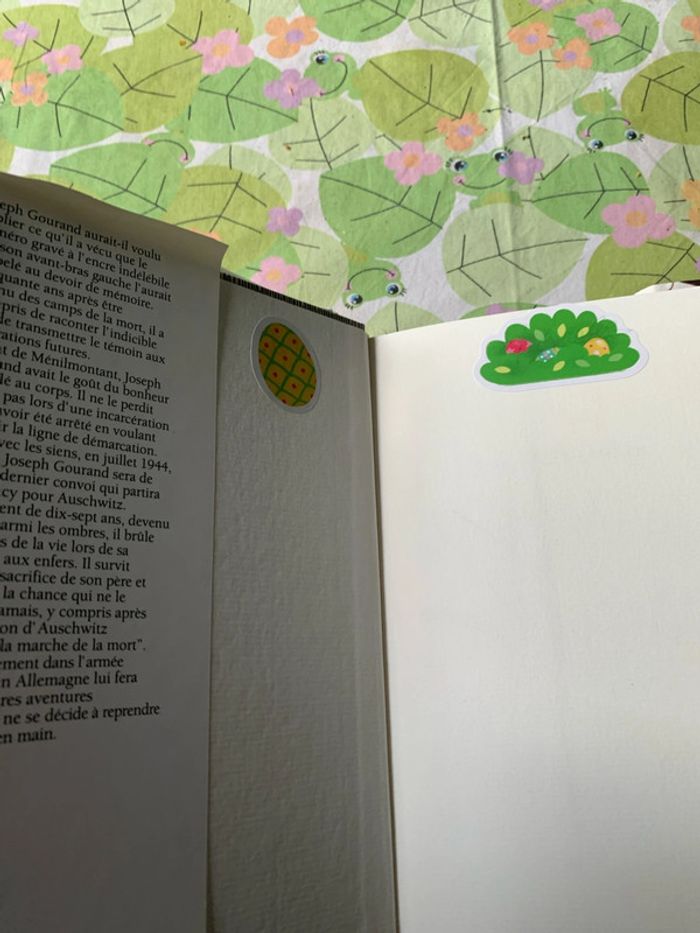 eph Gourand aurait-il voulu
blier ce qu'il a vécu que le
néro gravé à l'encre indélébile
son avant-bras gauche l'aurait
pelé au devoir de mémoire.
quante ans après être
nu des camps de la mort, il a
pris de raconter l'indicible
de transmettre le témoin aux
rations futures.
nt de Ménilmontant, Joseph
and avait le goût du bonheur
lé au corps. Il ne le perdit
pas lors d'une incarcération
avoir été arrêté en voulant
ir la ligne de démarcation.
vec les siens, en juillet 1944,
Joseph Gourand sera de
dernier convoi qui partira
cy pour Auschwitz.
ent de dix-sept ans, devenu
armi les ombres, il brûle
s de la vie lors de sa
aux enfers. Il survit
sacrifice de son père et
la chance qui ne le
amais, y compris après
on d'Auschwitz
la marche de la mort".
ement dans l'armée
n Allemagne lui fera
res aventures
ne se décide à reprendre
en main.